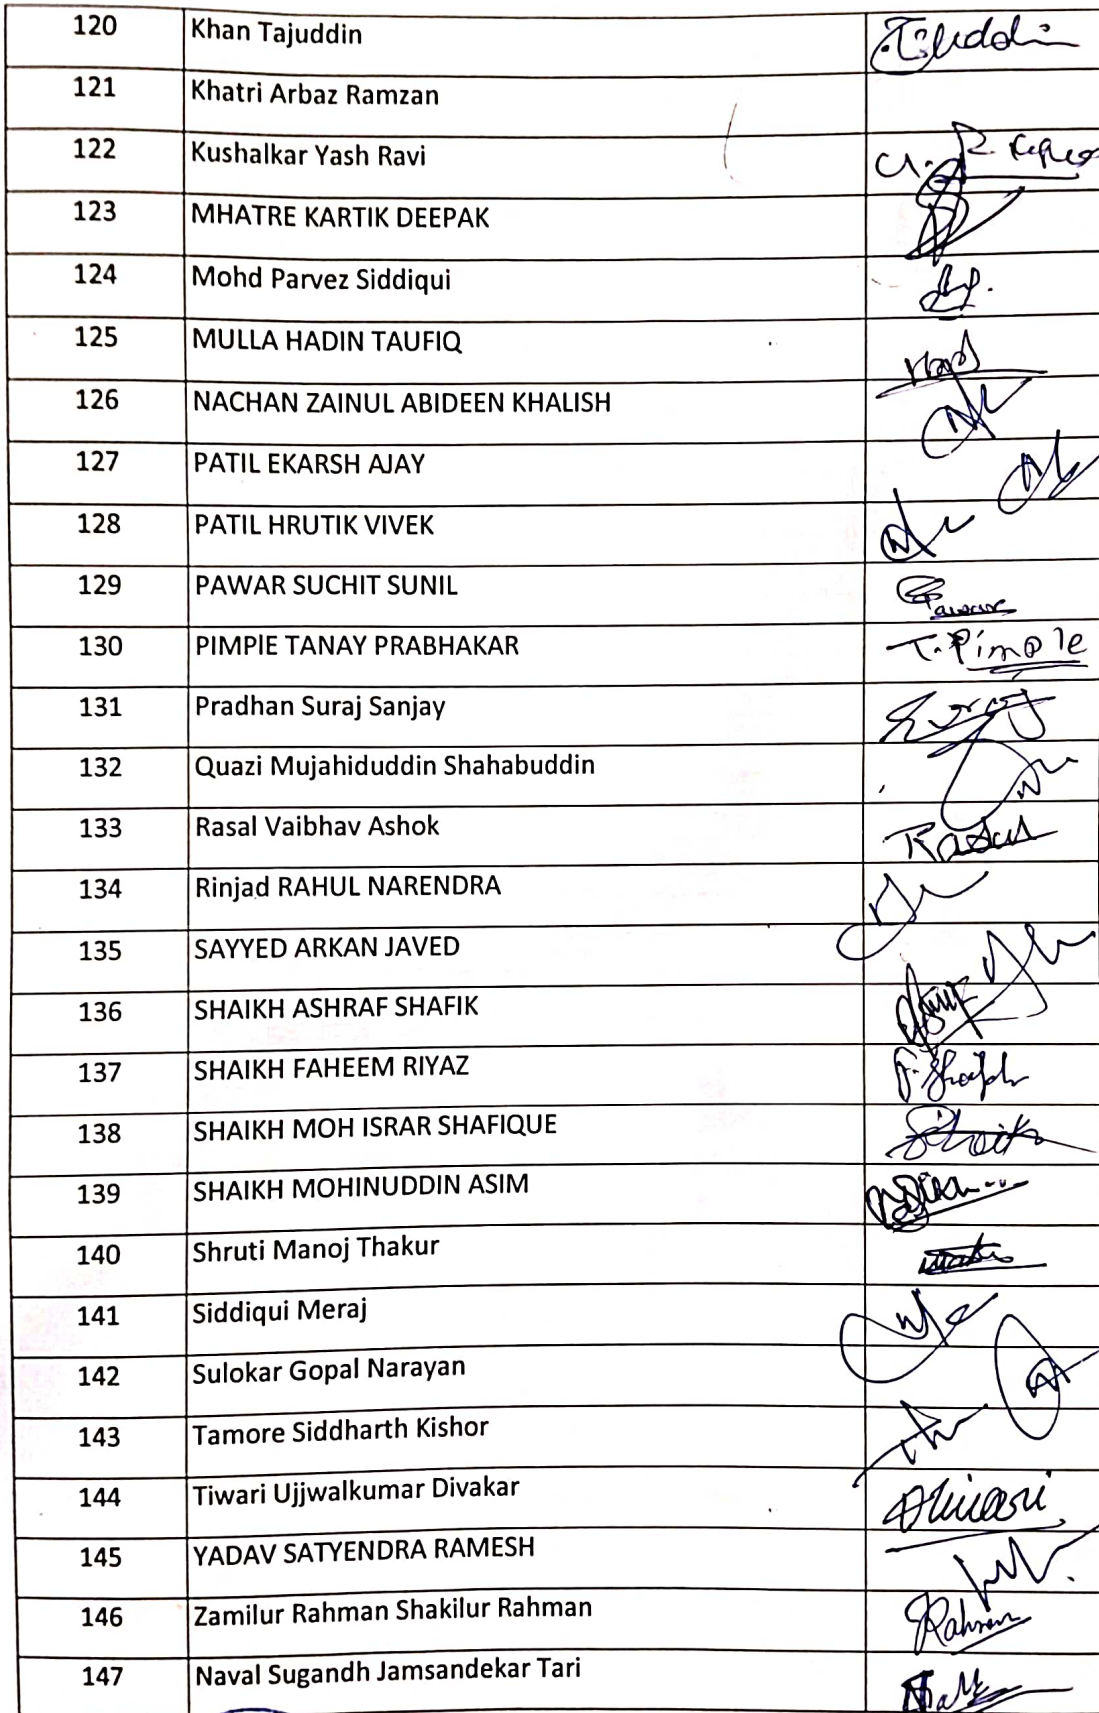 120 Khan Tajuddin
121 Khatri Arbaz Ramzan
122 Kushalkar Yash Ravi
123 MHATRE KARTIK DEEPAK
124 Mohd Parvez Siddiqui
125 MULLA HADIN TAUFIQ
126 NACHAN ZAINUL ABIDEEN KHALISH
127 PATIL EKARSH AJAY
128 PATIL HRUTIK VIVEK
129 PAWAR SUCHIT SUNIL
130 PIMPlE TANAY PRABHAKAR T. Pimple
131 Pradhan Suraj Sanjay Suraj
132 Quazi Mujahiduddin Shahabuddin
133 Rasal Vaibhav Ashok Rasal
134 Rinjad RAHUL NARENDRA
135 SAYYED ARKAN JAVED
136 SHAIKH ASHRAF SHAFIK
137 SHAIKH FAHEEM RIYAZ F. Shaikh
138 SHAIKH MOH ISRAR SHAFIQUE Shaikh
139 SHAIKH MOHINUDDIN ASIM
140 Shruti Manoj Thakur
141 Siddiqui Meraj
142 Sulokar Gopal Narayan
143 Tamore Siddharth Kishor
144 Tiwari Ujjwalkumar Divakar
145 YADAV SATYENDRA RAMESH
146 Zamilur Rahman Shakilur Rahman Rahman
147 Naval Sugandh Jamsandekar Tari